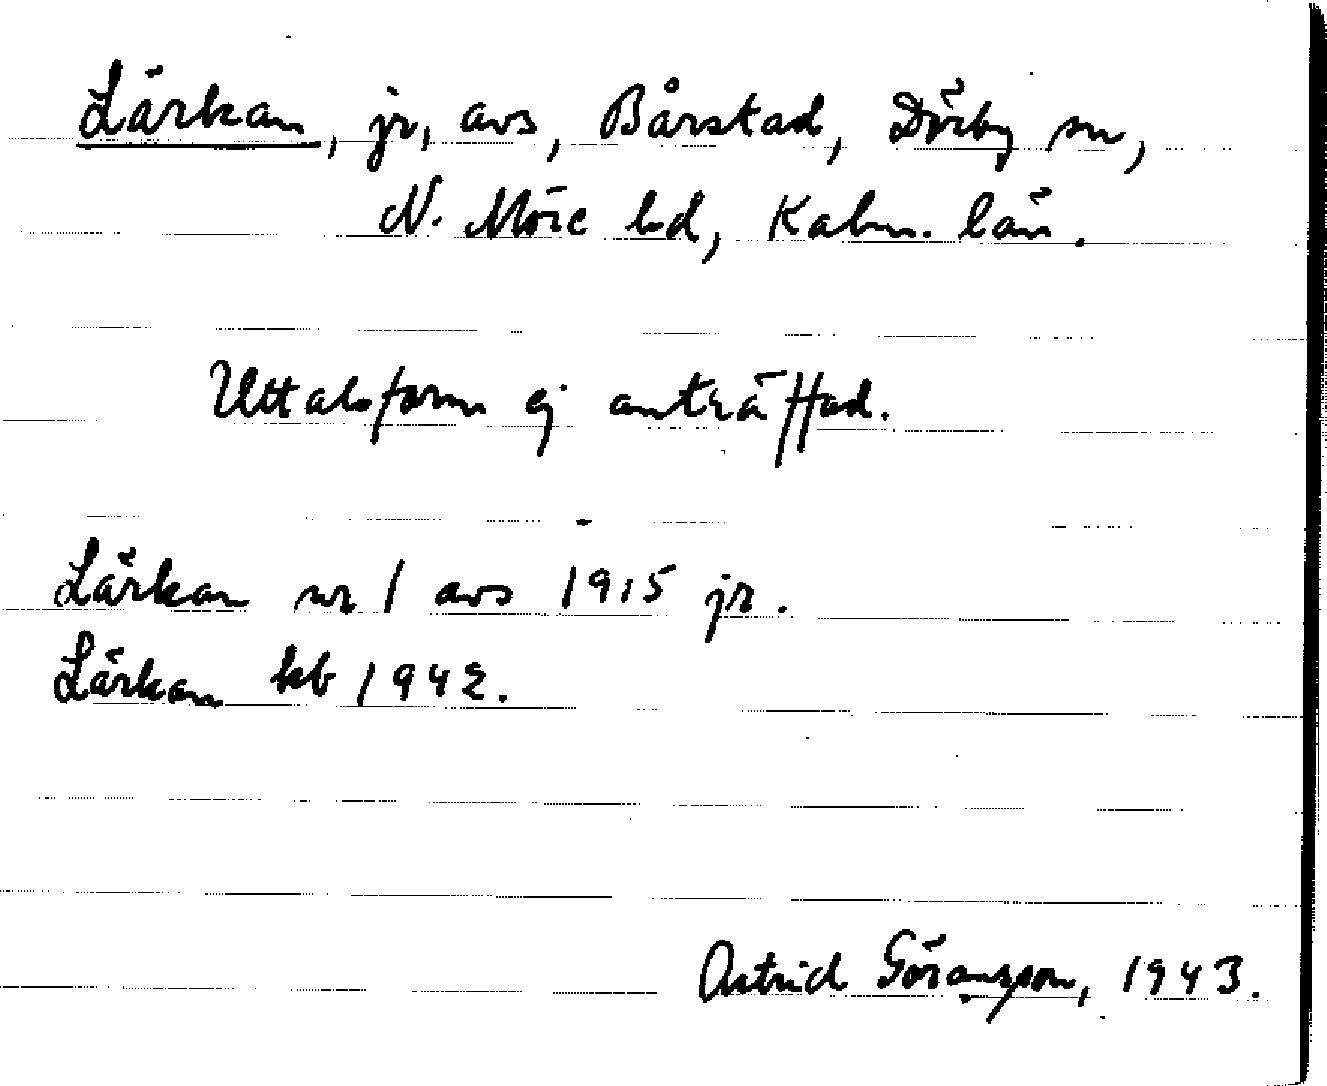 Lärkan, jr, avs, Bårstad, Dörby sn,
N. Möre hd, Kalm. län.
Uttalsform ej anträffad.
Lärkan nr 1 avs 1915 jr.
Lärkan kb 1942.
Astrid Göransson, 1943.